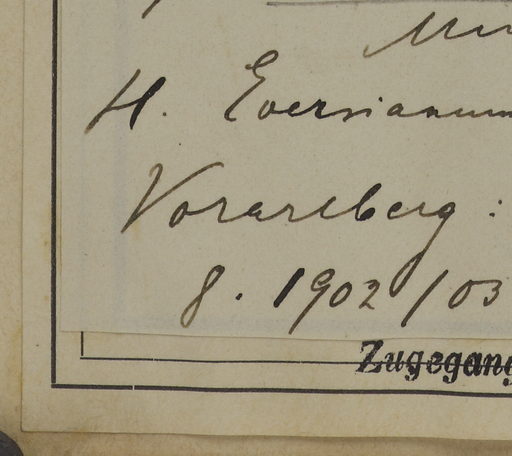 H. Eversianum
Vorarlberg :
8. 1902/03
Zugegang